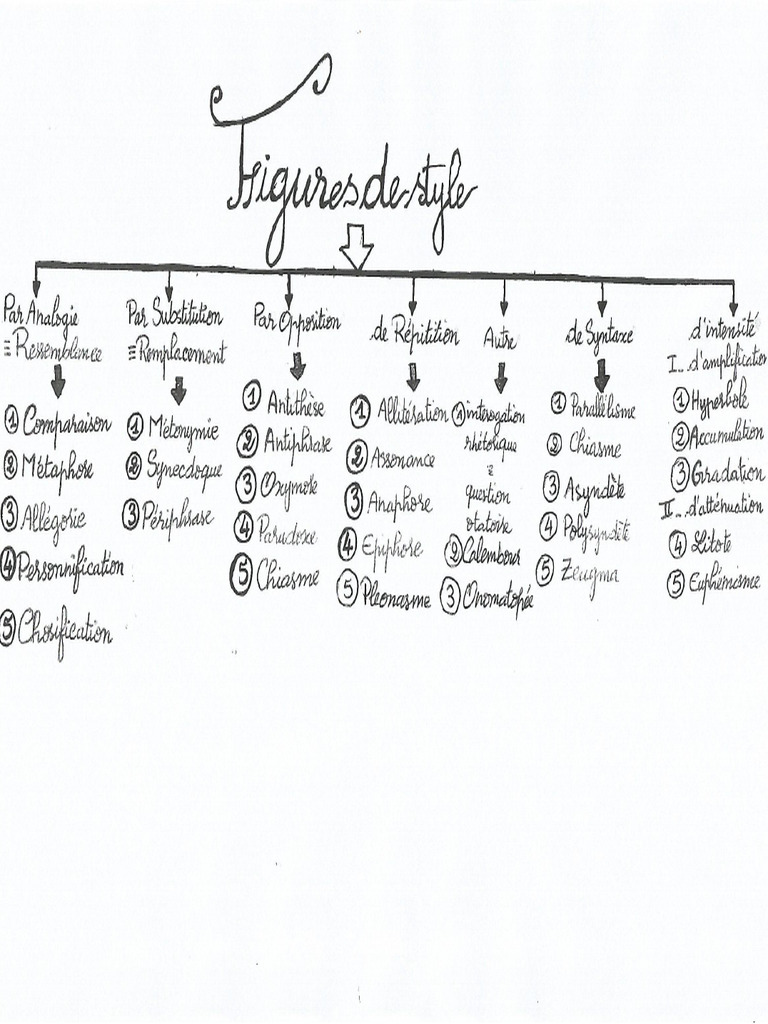 Figures de style
Par Analogie
≡ Ressemblance
① Comparaison
② Métaphore
③ Allégorie
④ Personnification
⑤ Chosification
Par Substitution
≡ Remplacement
① Métonymie
② Synecdoque
③ Périphrase
Par Opposition
① Antithèse
② Antiphrase
③ Oxymore
④ Paradoxe
⑤ Chiasme
de Répitition
① Allitération
② Assonance
③ Anaphore
④ Epiphore
⑤ Pleonasme
Autre
① interogation
rhétorique
=
question
otatoire
② Calembour
③ Onomatopée
de Syntaxe
① Parallélisme
② Chiasme
③ Asyndète
④ Polysyndète
⑤ Zeugma
d'intensité
I... d'amplification
① Hyperbole
② Accumulation
③ Gradation
II... d'atténuation
④ Litote
⑤ Euphémisme